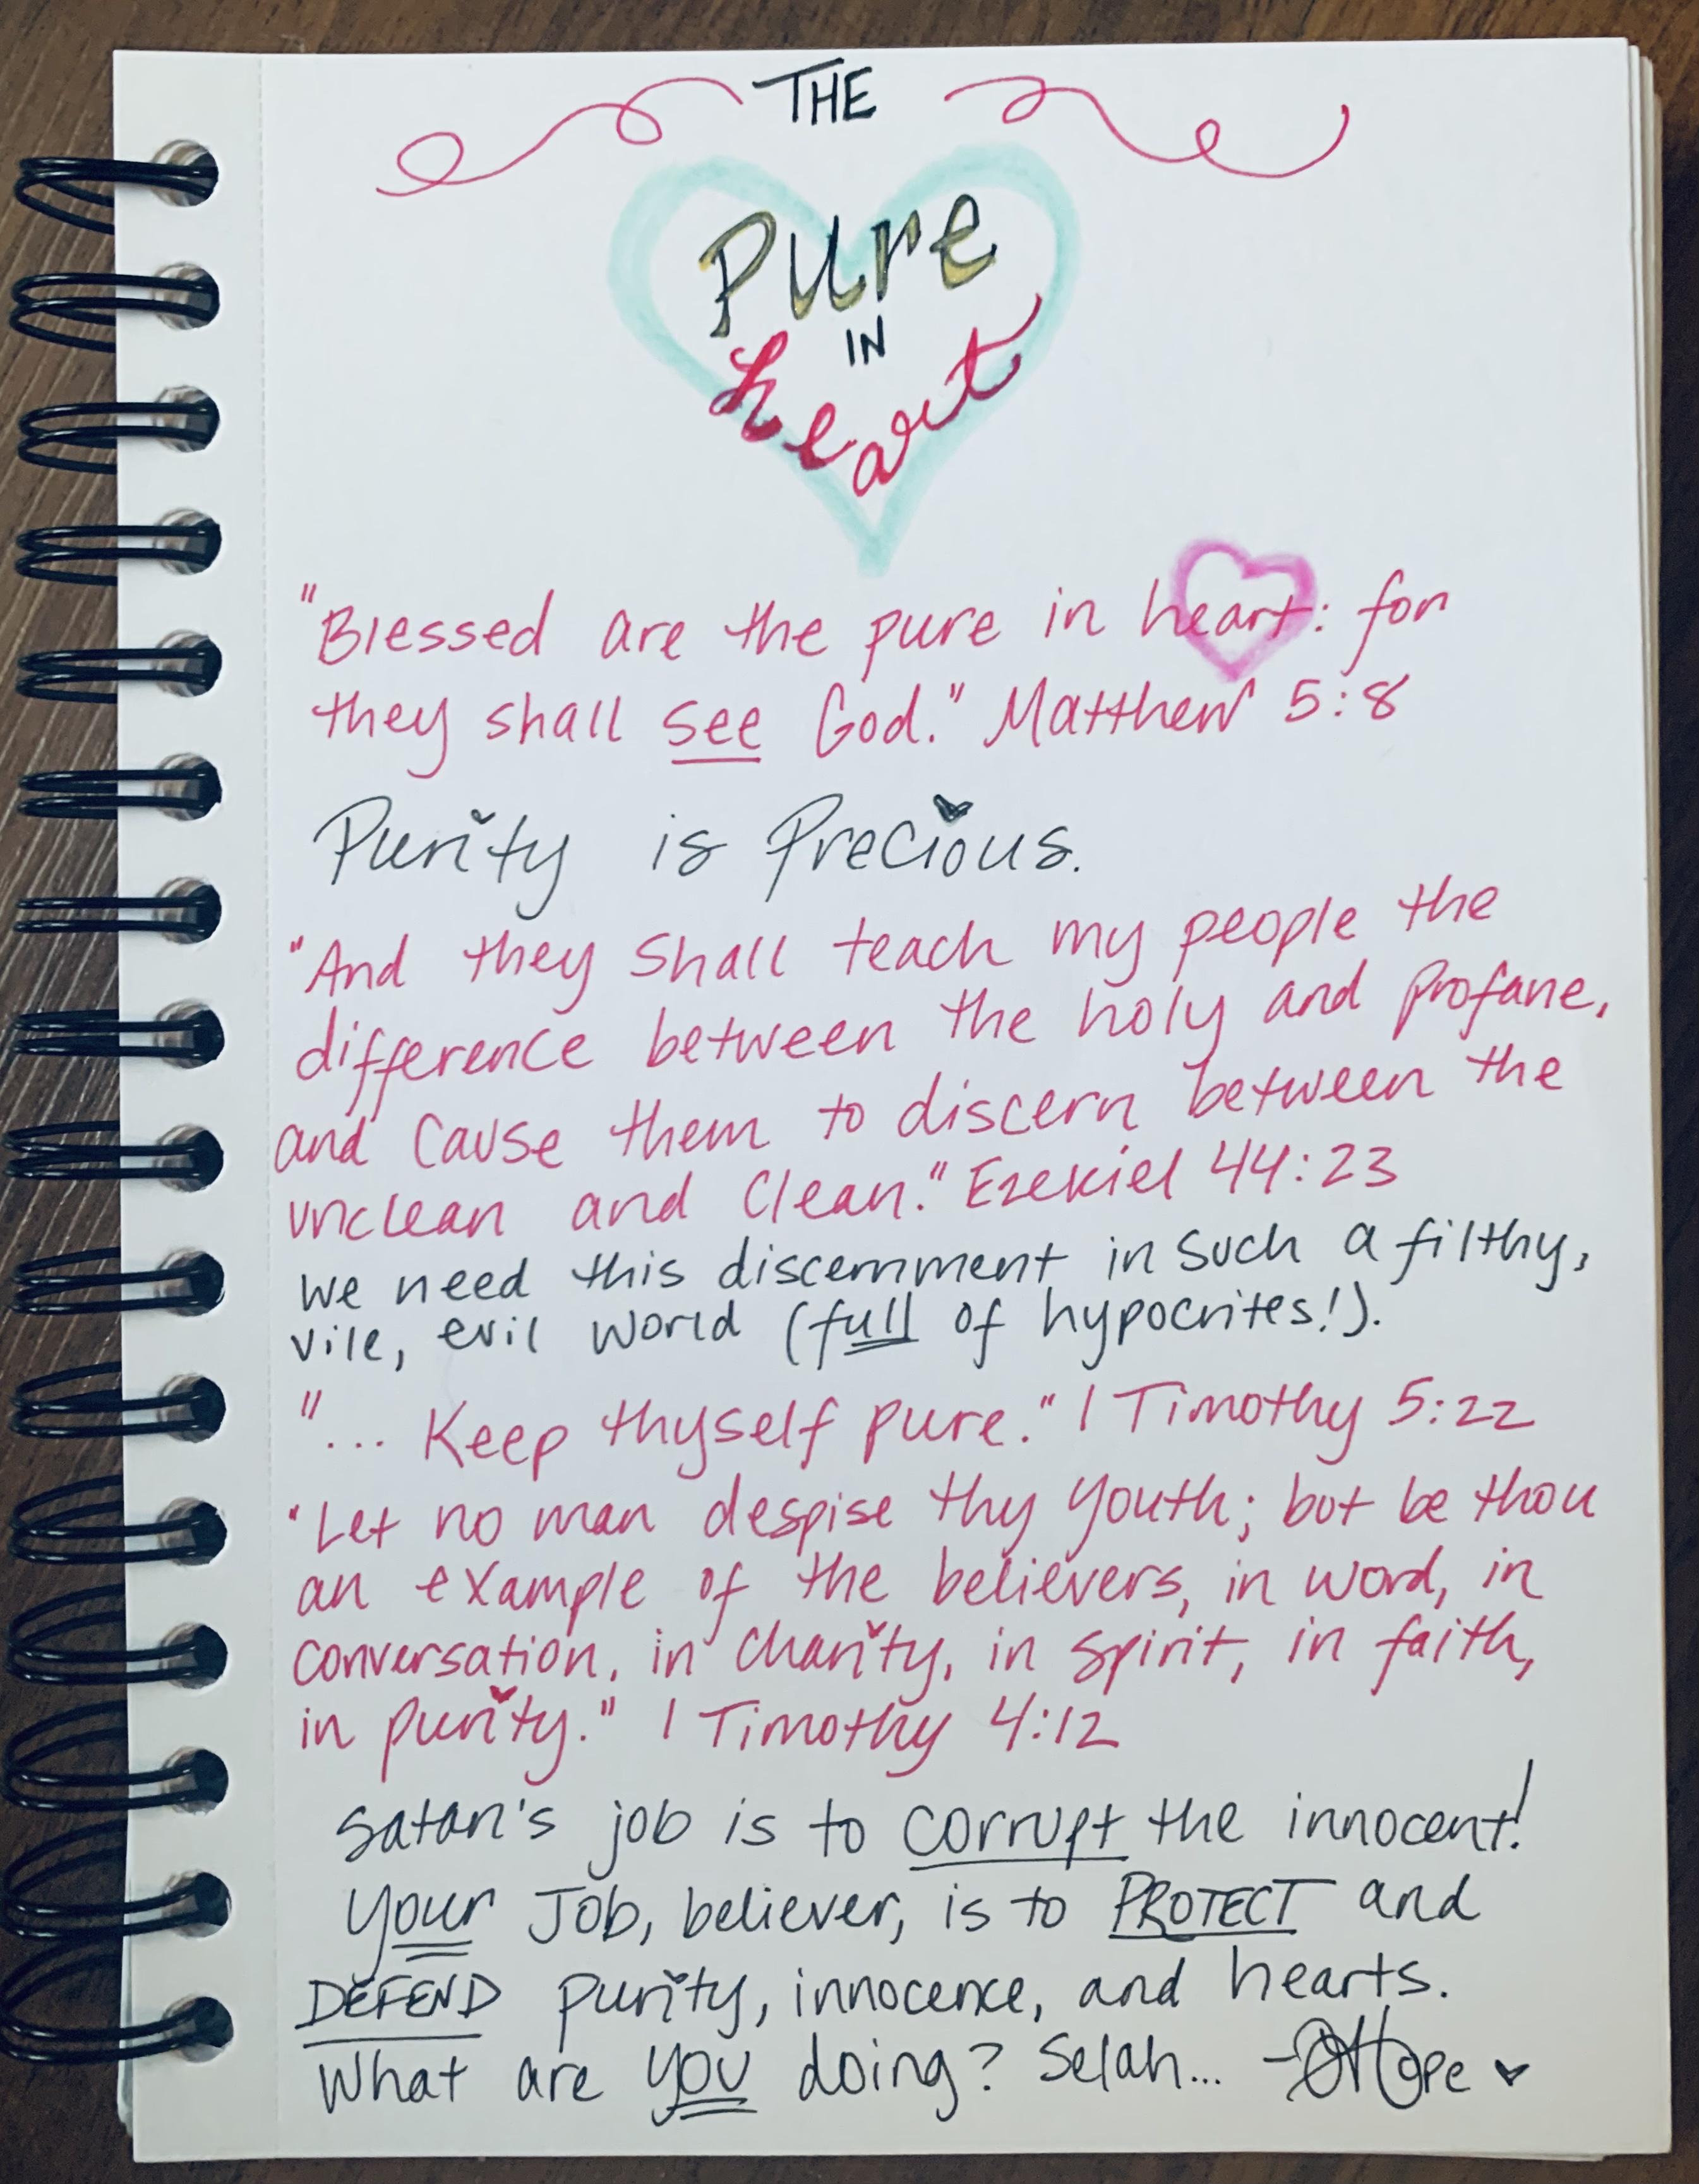 THE
Pure
IN
heart
"Blessed are the pure in heart: for
they shall see God." Matthew 5:8
Purity is Precious.
"And they shall teach my people the
difference between the holy and profane,
and cause them to discern between the
unclean and clean." Ezekiel 44:23
We need this discernment in such a filthy,
vile, evil world (full of hypocrites!).
"... Keep thyself pure." 1 Timothy 5:22
"Let no man despise thy youth; but be thou
an example of the believers, in word, in
conversation, in charity, in spirit, in faith,
in purity." 1 Timothy 4:12
Satan's job is to corrupt the innocent!
Your Job, believer, is to PROTECT and
DEFEND purity, innocence, and hearts.
What are YOU doing? Selah... - Hope